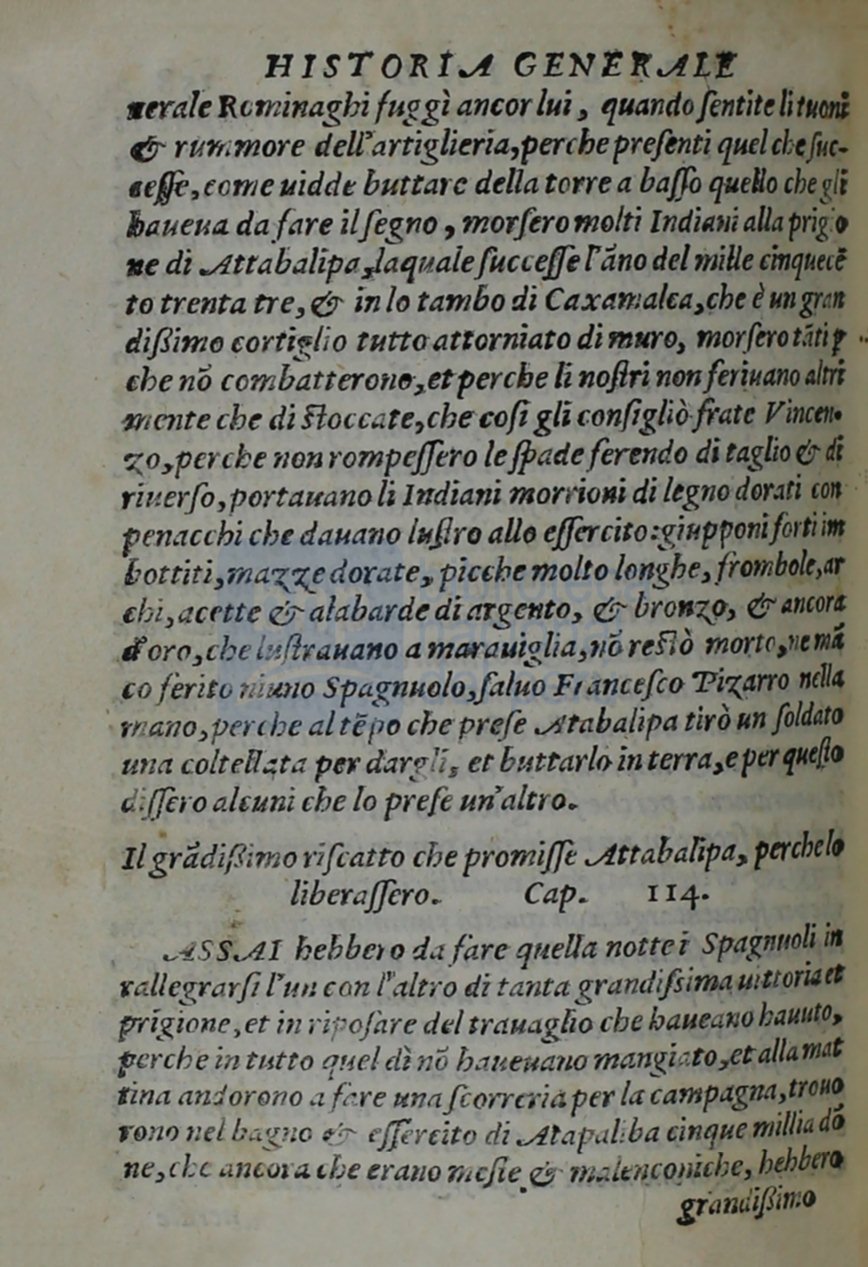 HISTORIA GENERALE
nerale Rominaghi fuggì ancor lui, quando ſentite li tuoni
& rummore dell'artiglieria, perche preſenti quel che ſuc-
ceſſe, come uidde buttare della torre a baſſo quello che gli
haueua da fare il ſegno, morſero molti Indiani alla prigio
ne di Attabalipa, laquale ſucceſſe l'ãno del mille cinquecẽ
to trenta tre, & in lo tambo di Caxamalca, che è un gran
dißimo cortiglio tutto attorniato di muro, morſero tãti ꝑ
che nõ combatterono, et perche li noſtri non feriuano altri
mente che di ſtoccate, che coſi gli conſigliò frate Vincen-
zo, perche non rompeſſero le ſpade ferendo di taglio & di
riuerſo, portauano li Indiani morrioni di legno dorati con
penacchi che dauano luſtro allo eſſercito: giupponi forti im
bottiti, mazze dorate, picche molto longhe, frombole, ar
chi, acette & alabarde di argento, & bronzo, & ancora
d'oro, che luſtrauano a marauiglia, nõ reſtò morto, ne mã
co ferito niuno Spagnuolo, ſaluo Franceſco Pizarro nella
mano, perche al tẽpo che preſe Atabalipa tirò un ſoldato
una coltellata per dargli, et buttarlo in terra, e per queſto
diſſero alcuni che lo preſe un'altro.
Il grãdißimo riſcatto che promiſſe Attabalipa, perche lo
liberaſſero. Cap. 114.
ASSAI hebbero da fare quella notte i Spagnuoli in
rallegrarſi l'un con l'altro di tanta grandiſsima uittoria et
prigione, et in ripoſare del trauaglio che haueano hauuto,
perche in tutto quel dì nõ haueuano mangiato, et alla mat
tina andorono a fare una ſcorreria per la campagna, trouo
rono nel bagno & eſſercito di Atapaliba cinque millia dõ
ne, che ancora che erano meſte & malenconiche, hebbero
grandißimo